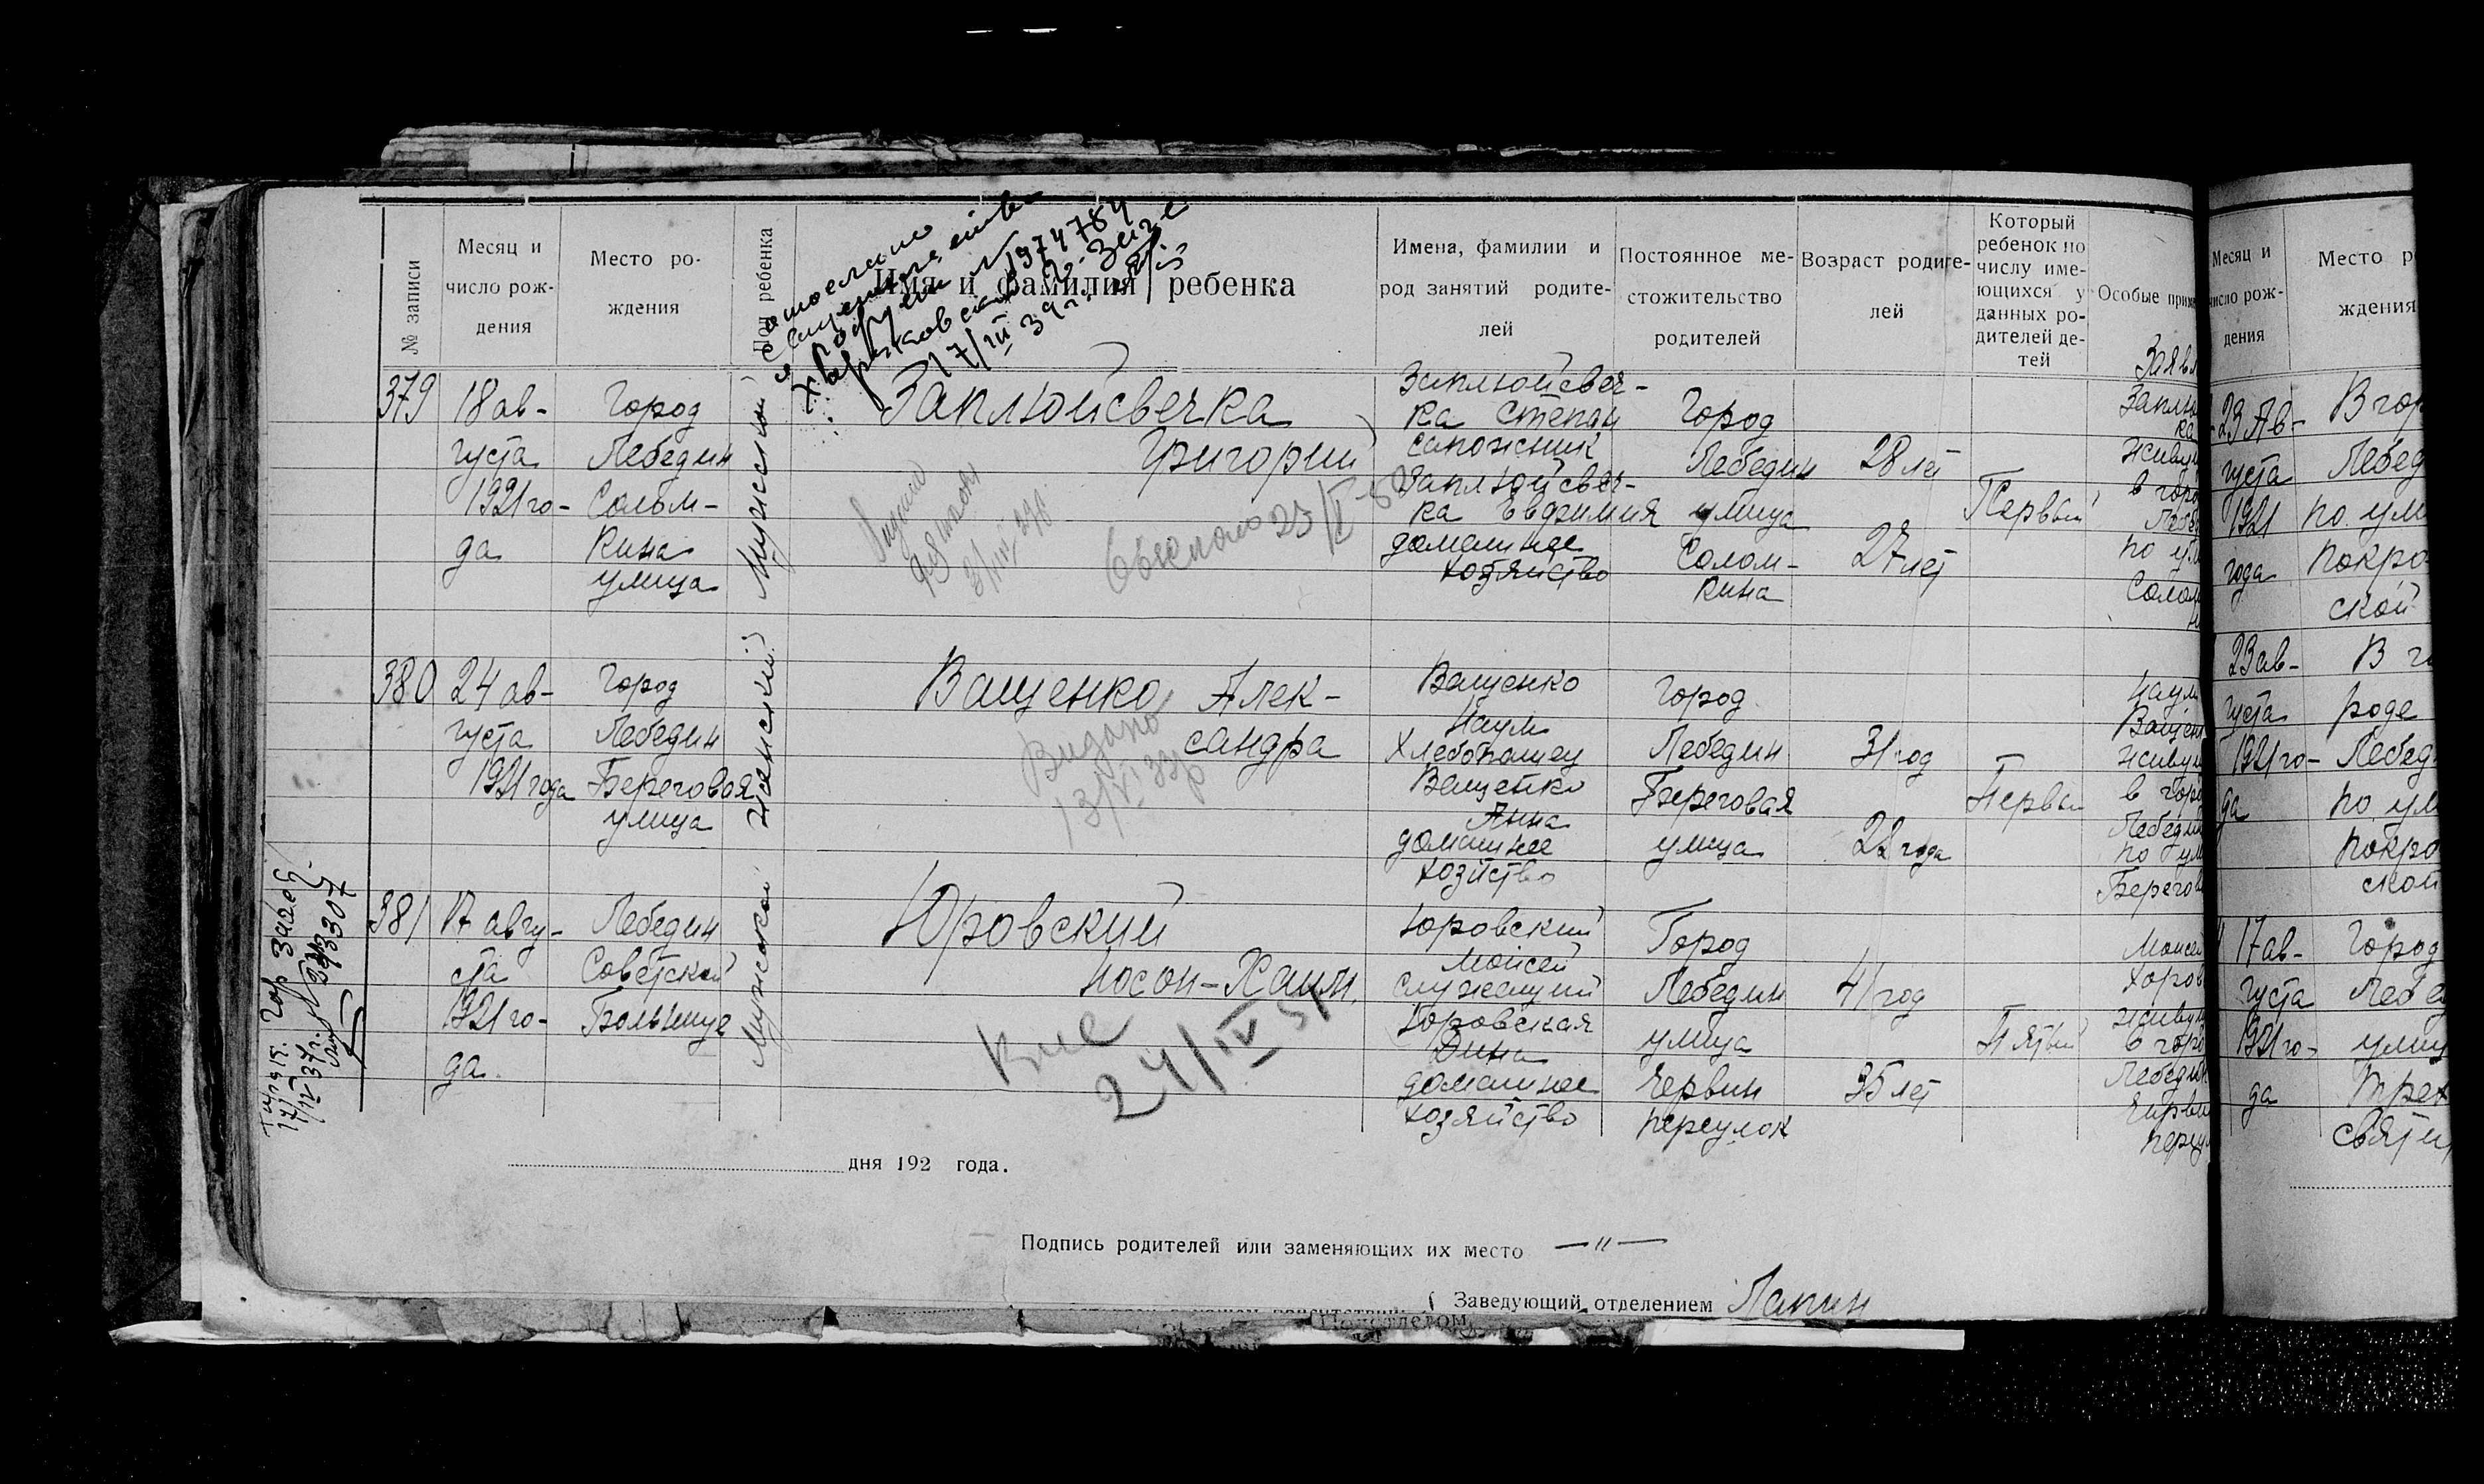 № записи
Месяц и
число рож-
дения
Место ро-
ждения
Пол ребенка
Имя и фамилия ребенка
Имена, фамилии и
род занятий родите-
лей
Постоянное ме-
стожительство
родителей
Возраст родите-
лей
Который
ребенок по
числу име-
ющихся у
данных ро-
дителей де-
тей
Особые прим
1974784
17/III 39 г.
379
18 ав-
густа
1921 го-
да
Город
Лебедин
Сольм-
кина
улица
Мужской
Заплюйсвечка
Григорий
Заплюйсвеч-
ка Степан
сапожник
Заплюйсвеч-
ка Евдимия
домашнее
хозяйство
Город
Лебедин
улица
Солом-
кина
28 лет
27 лет
Первый
Заяв
Заплю
ка
живу
в горо
Лебе
по ул
Солом
380
24 ав-
густа
1921 года
Город
Лебедин
Береговая
улица
Женский
Ващенко Алек-
сандра
Видано
13/VI 33 р
Ващенко
Наум
Хлебопашец
Ващенко
Анна
домашнее
хозяйство
Город
Лебедин
Береговая
улица
31 год
22 года
Первый
Наум
Ващен
живу
в горо
Лебедин
по ул
Берегов
381
17 авгу-
ста
1921 го-
да
Лебедин
Советской
Больнице
Мужской
Юровский
Носон-Хаим.
24/IV 51
Юровский
Моисей
служащий
Юровская
Дина
домашнее
хозяйство
Город
Лебедин
улица
Червин
переулок
41 год
35 лет
Пятый
Моисей
Юров
живу
в горо
Лебедин
Черви
переу
17/IV 37 г.
дня 192 года.
Подпись родителей или заменяющих их место —"—
Заведующий отделением Лапин
Месяц и
число рож-
дения
Место р
ждения
23 Ав-
густа
1921
года
В гор
Лебед
по ули
Покро
ской
23 ав-
густа
1921 го-
да
В го
роде
Лебед
по ул
Покро
ской
17 ав-
густа
1921 го-
да
Город
Лебе
улиц
Трех
святи